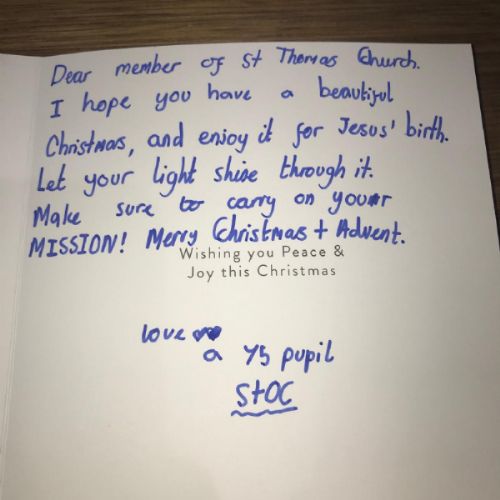 Dear member of St Thomas Church.
I hope you have a beautiful
Christmas, and enjoy it for Jesus' birth.
Let your light shine through it.
Make sure to carry on your
MISSION! Merry Christmas + Advent.
Wishing you Peace &
Joy this Christmas
love
a Y5 pupil
StOC